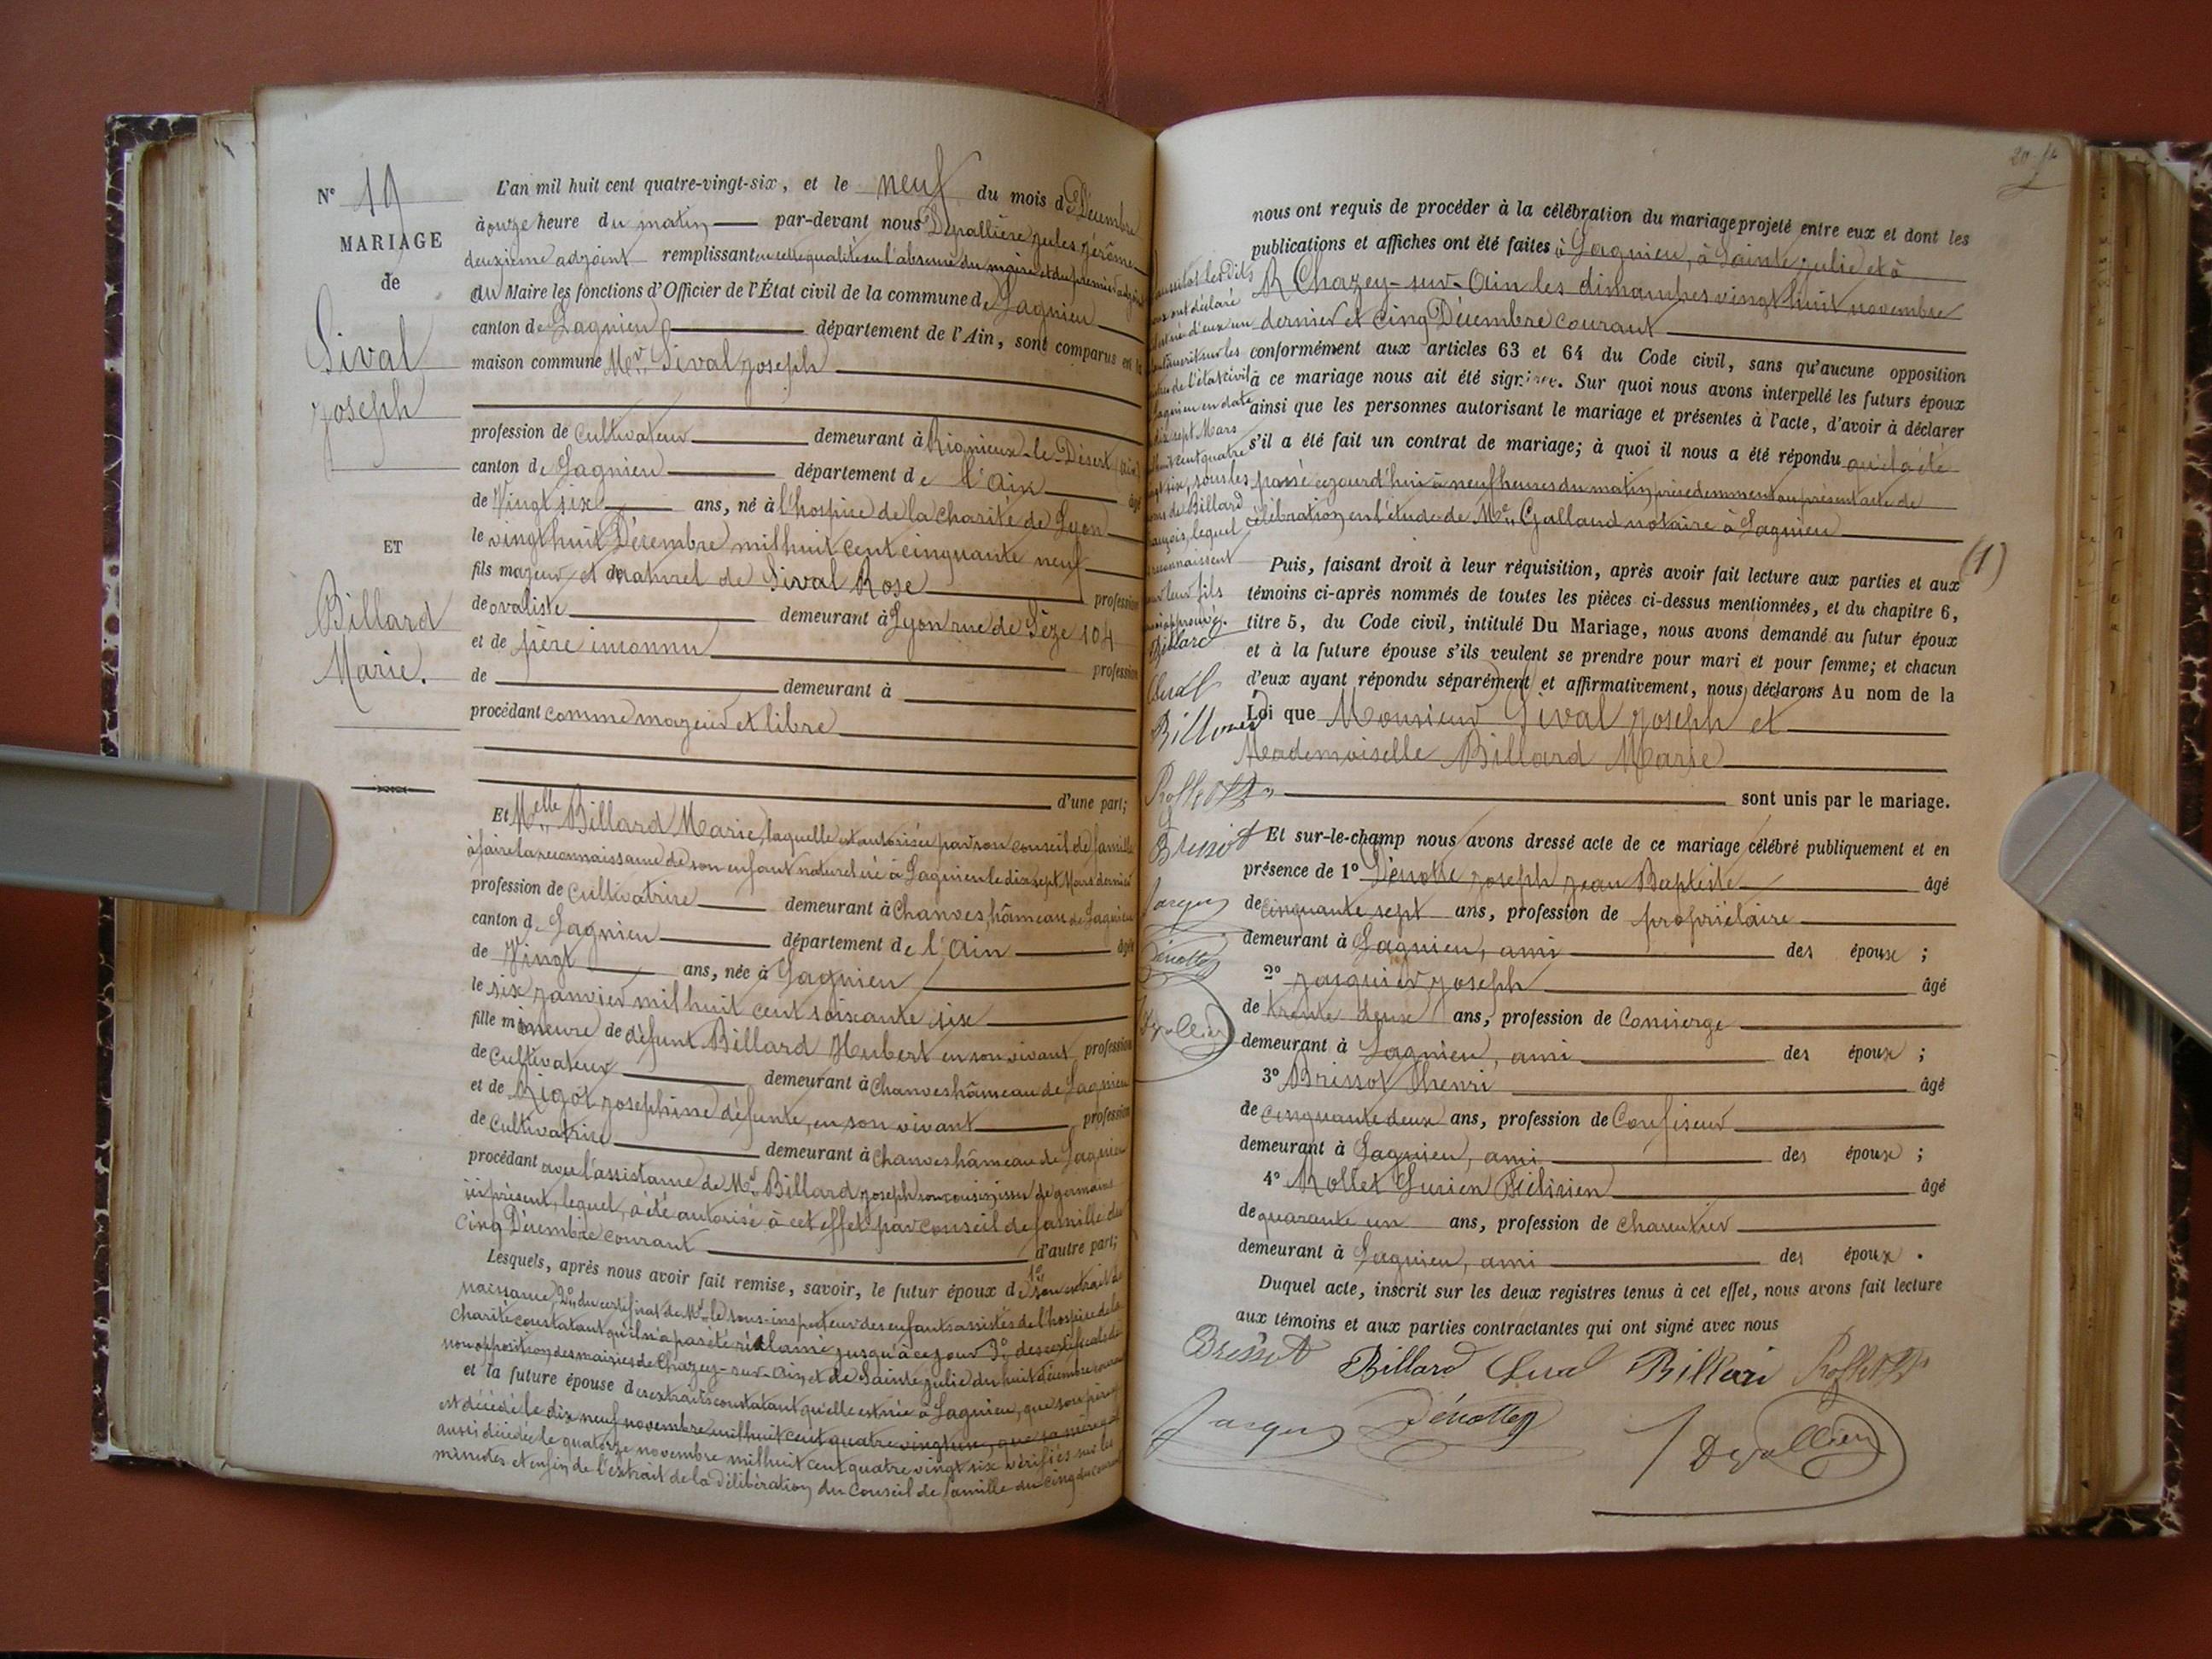 N° 19
MARIAGE
de
Sival
Joseph
ET
Billard
Marie.
L'an mil huit cent quatre-vingt-six, et le neuf du mois de Décembre
à onze heure du matin par-devant nous Depallière Jules Jérôme
deuxième adjoint remplissant en cette qualité en l'absence du maire et du premier adjoint
du Maire les fonctions d'Officier de l'État civil de la commune de Lagnieu
canton de Lagnieu département de l'Ain, sont comparus en la
maison commune Mr. Sival Joseph
profession de cultivateur demeurant à Rignieux-le-Désert (Ain)
canton de Lagnieu département de l'Ain âgé
de Vingt six ans, né à l'hospice de la Charité de Lyon
le vingt huit Décembre mil huit cent cinquante neuf
fils majeur et naturel de Sival Rose profession
de ovaliste demeurant à Lyon rue de Sèze 104
et de père inconnu profession
de demeurant à
procédant comme majeur et libre
d'une part;
Et Melle Billard Marie, laquelle est autorisée par son conseil de famille
à faire la reconnaissance de son enfant naturel né à Lagnieu le dix sept Mars dernier
profession de cultivatrice demeurant à Chanves, hâmeau de Lagnieu
canton de Lagnieu département de l'Ain âgée
de Vingt ans, née à Lagnieu
le six janvier mil huit cent soixante six
fille mineure de défunt Billard Hubert en son vivant profession
de cultivateur demeurant à Chanves hâmeau de Lagnieu
et de Rigot Josephine défunte, en son vivant profession
de cultivatrice demeurant à Chanves hâmeau de Lagnieu
procédant avec l'assistance de Mr. Billard Joseph son cousin issu de germains
ici présent, lequel, a été autorisé à cet effet par conseil de famille du
cinq Décembre courant d'autre part;
Lesquels, après nous avoir fait remise, savoir, le futur époux de 1° son extrait de
naissance, 2° du certificat de Mr. le sous-inspecteur des enfants assistés de l'hospice de la
Charité constatant qu'il n'a pas été réclamé jusqu'à ce jour 3° des certificats de
non opposition des mairies de Chazey-sur-Ain et de Sainte Julie du huit décembre courant
et la future épouse des extraits constatant qu'elle est née à Lagnieu, que son père
est décédé le dix neuf novembre mil huit cent quatre vingt un, que sa mère est
aussi décédée le quatorze novembre mil huit cent quatre vingt six vérifiés sur les
minutes et enfin de l'extrait de la délibération du Conseil de famille du cinq du courant
nous ont requis de procéder à la célébration du mariage projeté entre eux et dont les
publications et affiches ont été faites à Lagnieu, à Sainte Julie et à
Chazey-sur-Ain les dimanches vingt huit novembre
dernier et cinq Décembre courant
conformément aux articles 63 et 64 du Code civil, sans qu'aucune opposition
à ce mariage nous ait été signifiée. Sur quoi nous avons interpellé les futurs époux
ainsi que les personnes autorisant le mariage et présentes à l'acte, d'avoir à déclarer
s'il a été fait un contrat de mariage; à quoi il nous a été répondu qu'il a été
passé aujourd'hui à neuf heures du matin précédemment au présent acte de
célébration en l'étude de Me. Galland notaire à Lagnieu
(1)
Puis, faisant droit à leur réquisition, après avoir fait lecture aux parties et aux
témoins ci-après nommés de toutes les pièces ci-dessus mentionnées, et du chapitre 6,
titre 5, du Code civil, intitulé Du Mariage, nous avons demandé au futur époux
et à la future épouse s'ils veulent se prendre pour mari et pour femme; et chacun
d'eux ayant répondu séparément et affirmativement, nous déclarons Au nom de la
Loi que Monsieur Sival Joseph et
Mademoiselle Billard Marie
sont unis par le mariage.
Et sur-le-champ nous avons dressé acte de ce mariage célébré publiquement et en
présence de 1° Dénotte Joseph Jean Baptiste âgé
de cinquante sept ans, profession de propriétaire
demeurant à Lagnieu, ami des époux ;
2° Jacquier Joseph âgé
de trente deux ans, profession de Concierge
demeurant à Lagnieu, ami des époux ;
3° Brissot Henri âgé
de cinquante deux ans, profession de Confiseur
demeurant à Lagnieu, ami des époux ;
4° Rollet Lucien âgé
de quarante un ans, profession de charcutier
demeurant à Lagnieu, ami des époux .
Duquel acte, inscrit sur les deux registres tenus à cet effet, nous avons fait lecture
aux témoins et aux parties contractantes qui ont signé avec nous
Billard